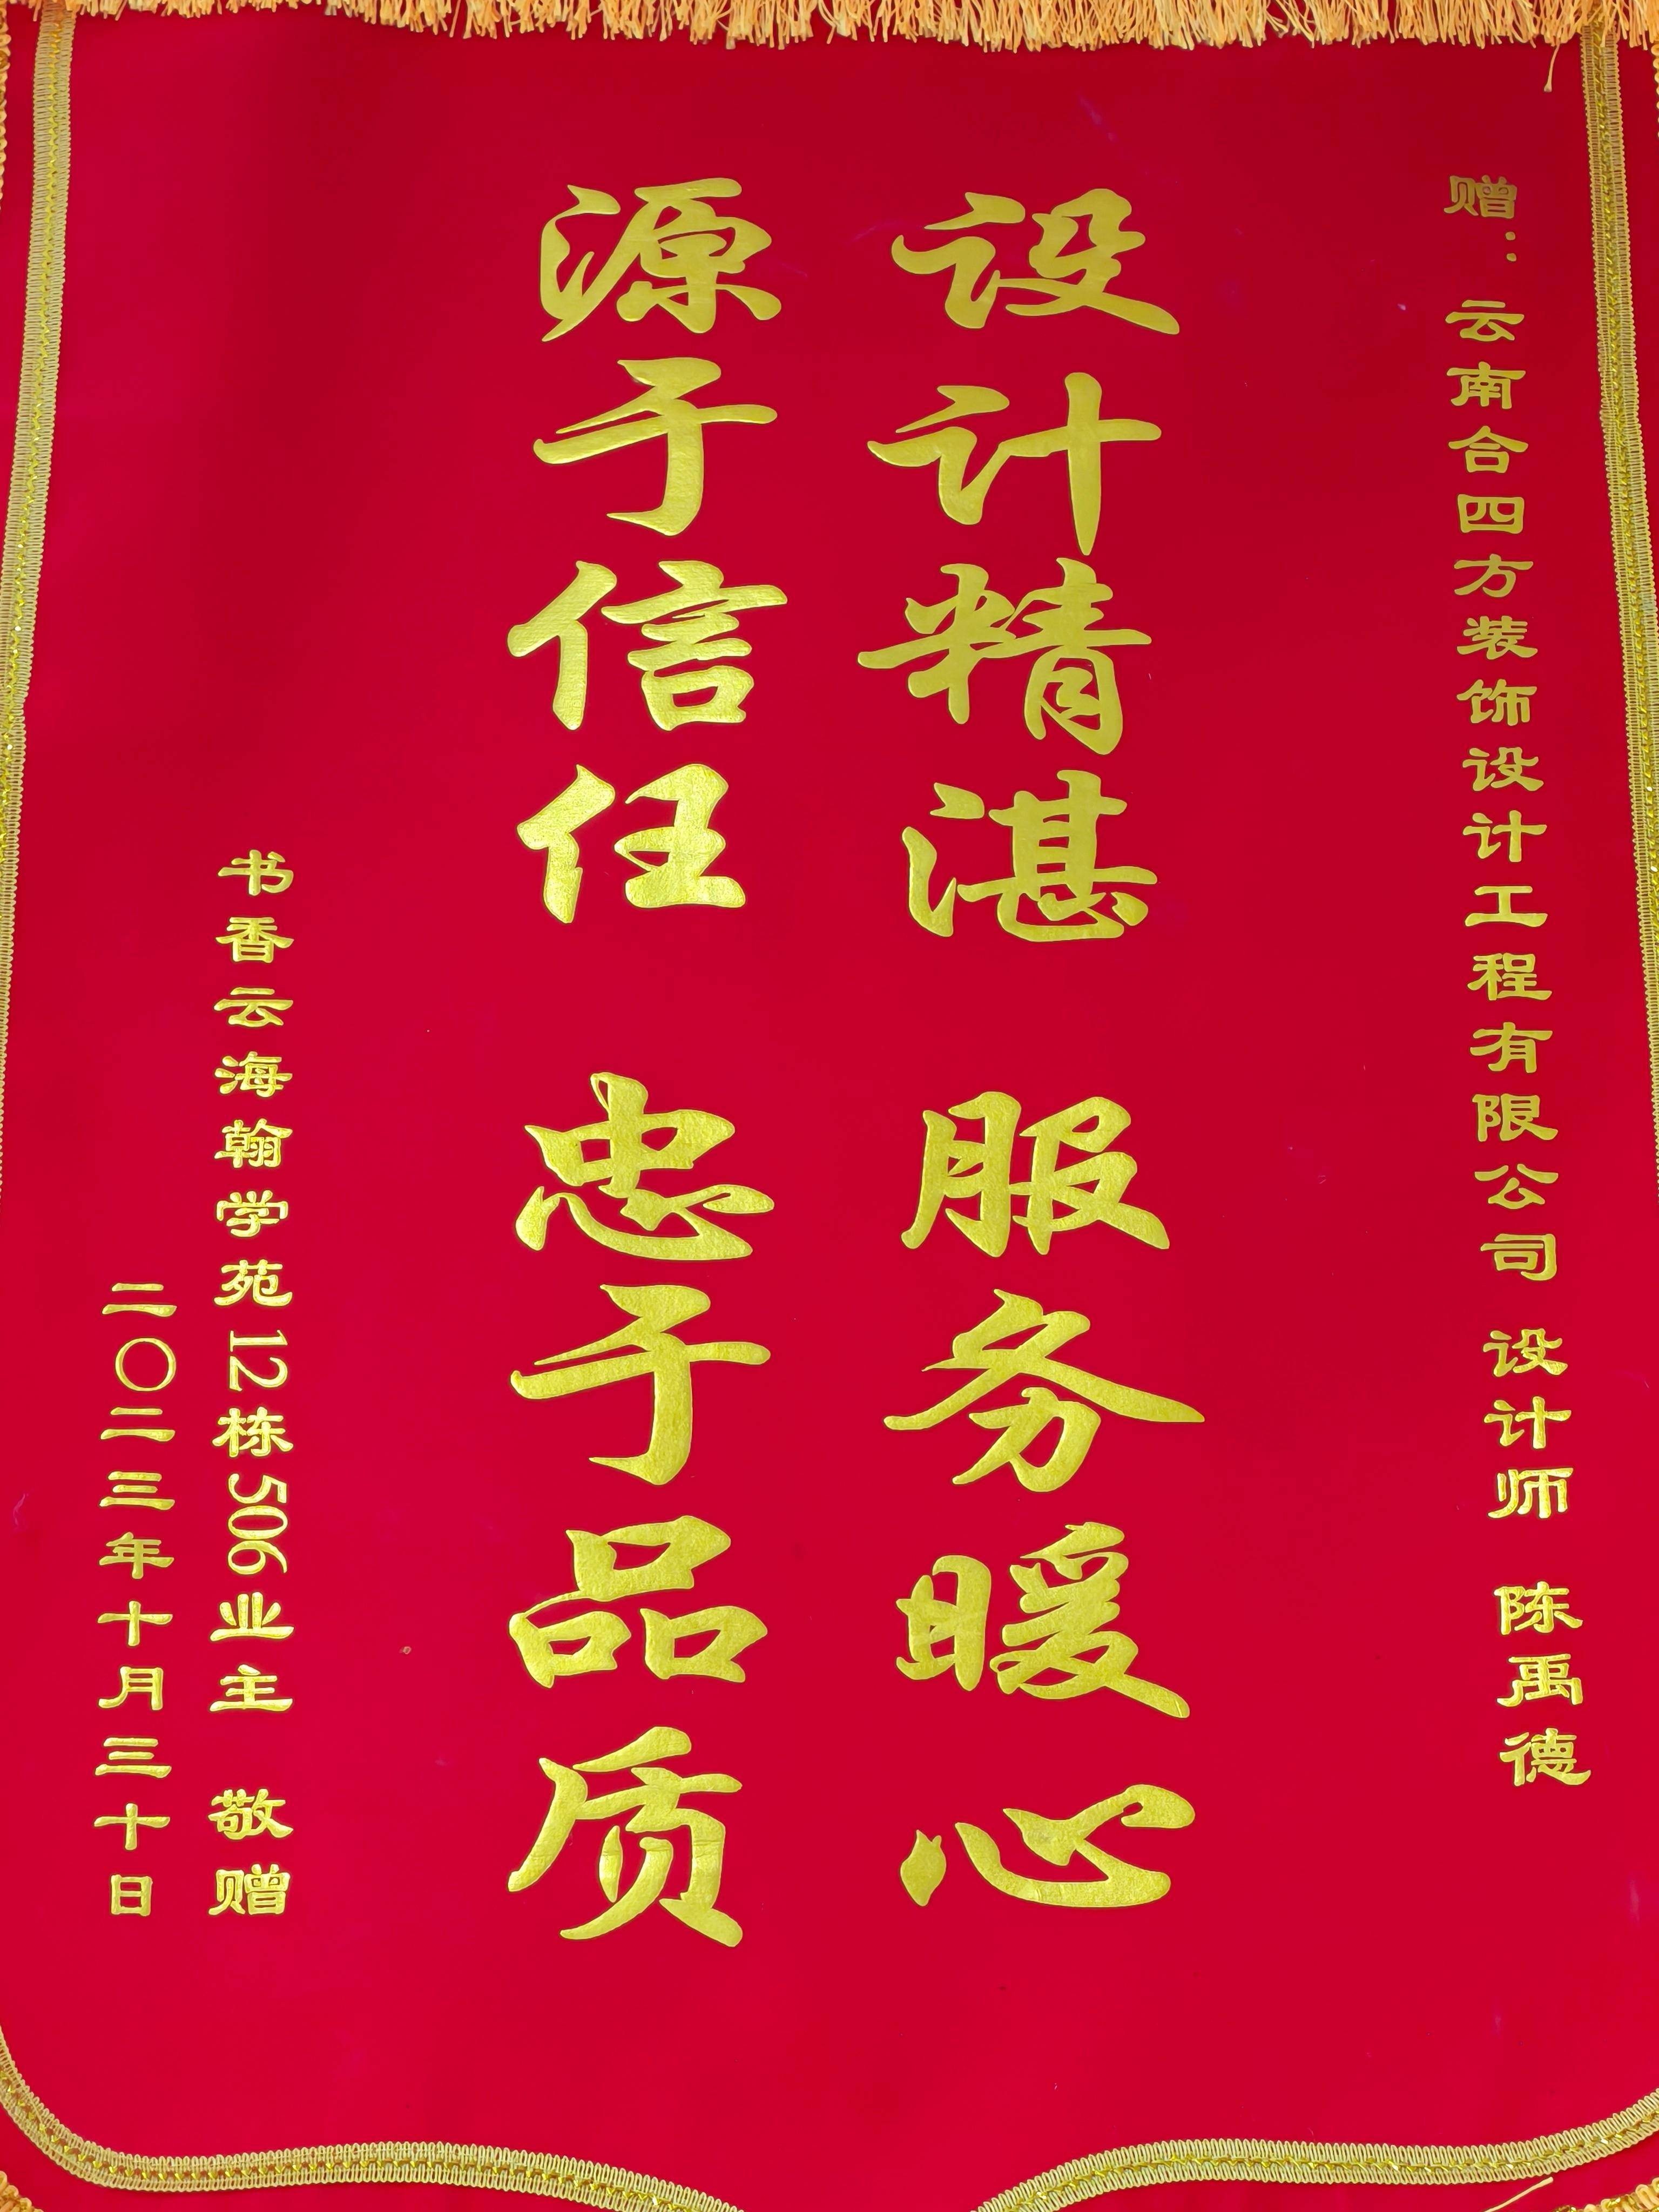 赠：云南合四方装饰设计工程有限公司 设计师 陈禹德
设计精湛 服务暖心
源于信任 忠于品质
书香云海翰学苑12栋506业主 敬赠
二〇二三年十月三十日